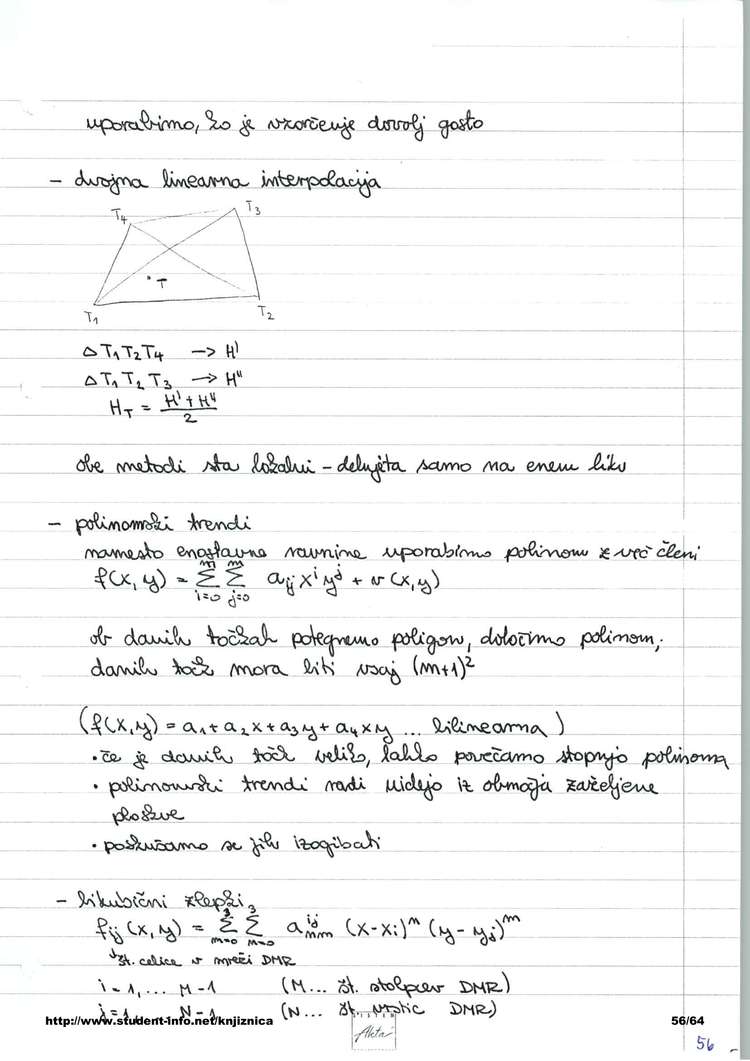 uporabimo, ko je vzorčenje dovolj gosto
- dvojna linearna interpolacija
T4 T3
T
T1 T2
Δ T1 T2 T4 -> H'
Δ T1 T2 T3 -> H"
HT = (H' + H") / 2
obe metodi sta lokalni - delujeta samo na enem liku
- polinomski trendi
namesto enostavne ravnine uporabimo polinom z več členi
f(x, y) = Σ(i=0..m) Σ(j=0..m) aij x^i y^j + v(x, y)
ob danih točkah potegnemo poligon, določimo polinom;
danih točk mora biti vsaj (m+1)²
(f(x,y) = a1 + a2x + a3y + a4xy ... bilinearna)
• če je danih točk veliko, lahko povečamo stopnjo polinoma
• polinomski trendi radi uidejo iz območja zaželjene
ploskve
• poskušamo se jih izogibati
- bikubični zlepki
fij (x, y) = Σ(m=0..3) Σ(n=0..3) a^ij_nm (x-xi)^n (y-yj)^m
št. celice v mreži DMR
i = 1, ... M-1 (M... št. stolpcev DMR)
j = 1, ... N-1 (N... št. vrstic DMR)
http://www.student-info.net/knjiznica
56/64
Akta
56